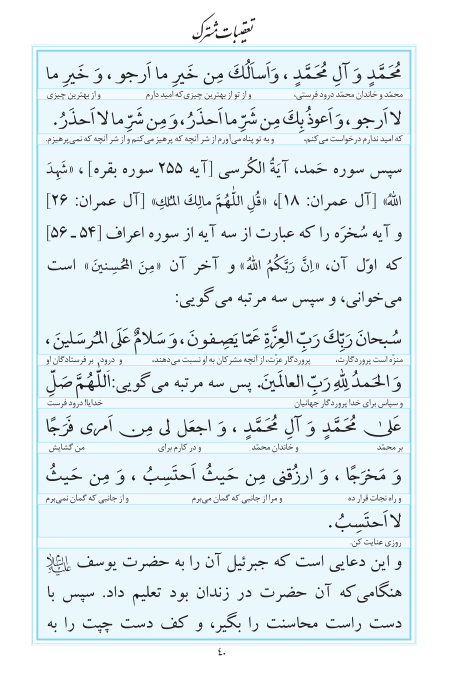 تعقیبات مشترک
مُحَمَّدٍ وَ آلِ مُحَمَّدٍ ، وَاَساَلُكَ مِن خَیرِ ما اَرجو ، وَ خَیرِ ما
محمّد و خاندان محمّد درود فرستی، و از تو از بهترین چیزی که امید دارم و از بهترین چیزی
لا اَرجو ، وَ اَعوذُ بِكَ مِن شَرِّ ما اَحذَرُ ، وَ مِن شَرِّ ما لا اَحذَرُ.
که امید ندارم درخواست می‌کنم، و به تو پناه می‌آورم از شر آنچه که پرهیز می‌کنم و از شر آنچه که نمی‌پرهیزم.
سپس سوره حَمد، آیَةُ الکُرسی [آیه ۲۵۵ سوره بقره] ، «شَهِدَ
اللهُ» [آل عمران: ۱۸]، «قُلِ اللّٰهُمَّ مالِكَ المُلكِ» [آل عمران: ۲۶]
و آیه سُخرَه را که عبارت از سه آیه از سوره اعراف [۵۴ ـ ۵۶]
که اوّل آن، «اِنَّ رَبَّكُمُ اللهُ» و آخر آن «مِنَ المُحسِنینَ» است
می‌خوانی، و سپس سه مرتبه می‌گویی:
سُبحانَ رَبِّكَ رَبِّ العِزَّةِ عَمّا یَصِفونَ ، وَ سَلامٌ عَلَی المُرسَلینَ ،
منزّه است پروردگارت، پروردگار عزّت، از آنچه مشرکان به او نسبت می‌دهند، و درود بر فرستادگان او
وَ الحَمدُ لِلّٰهِ رَبِّ العالَمینَ. پس سه مرتبه می‌گویی: اَللّٰهُمَّ صَلِّ
و سپاس برای خدا پروردگار جهانیان خدایا! درود فرست
عَلیٰ مُحَمَّدٍ وَ آلِ مُحَمَّدٍ ، وَ اجعَل لی مِن اَمری فَرَجًا
بر محمّد و خاندان محمّد و در کارم برای من گشایش
وَ مَخرَجًا ، وَ ارزُقنی مِن حَیثُ اَحتَسِبُ ، وَ مِن حَیثُ
و راه نجات قرار ده و مرا از جانبی که گمان می‌برم و از جانبی که گمان نمی‌برم
لا اَحتَسِبُ .
روزی عنایت کن.
و این دعایی است که جبرئیل آن را به حضرت یوسف علیه السلام
هنگامی‌که آن حضرت در زندان بود تعلیم داد. سپس با
دست راست محاسنت را بگیر، و کف دست چپت را به
۴۰